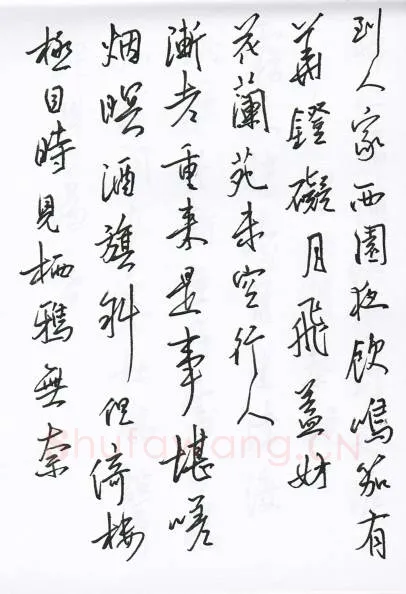 到人家西園夜飲鳴笳有
華鐙礙月飛蓋妨
花蘭苑未空行人
漸老重來是事堪嗟
烟暝酒旗斜但倚樓
極目時見栖鴉無奈
Shufawang.CN